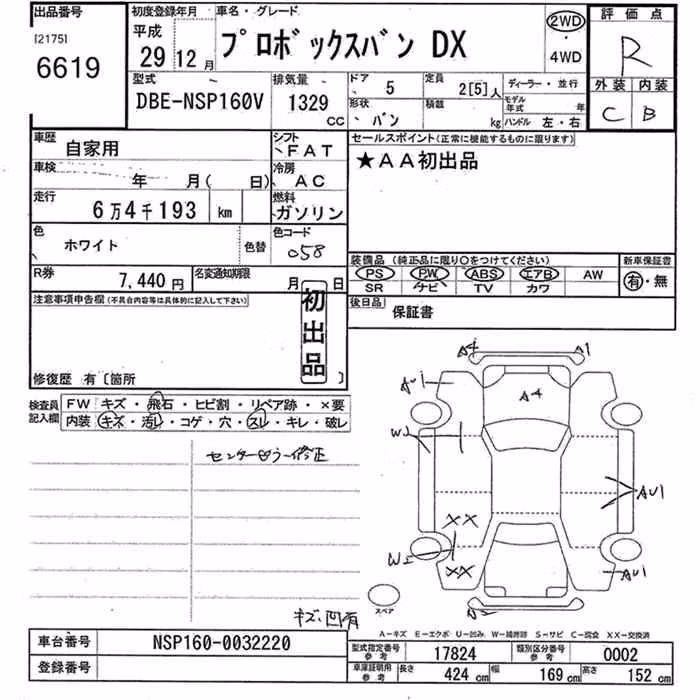 出品番号
[2175]
6619
初度登録年月
平成
29 12 月
車名・グレード
プロボックスバン DX
2WD
・
4WD
評価点
R
外装 内装
C B
型式
DBE-NSP160V
排気量
1329
CC
ドア
5
定員
2[5]人
ディーラー・並行
形状
バン
積載
kg
モデル年式 年
ハンドル 左・右
車歴
自家用
シフト
FAT
車検
年 月( 日)
冷房
AC
走行
6万4千193 km
燃料
ガソリン
色
ホワイト
色替
色コード
058
R券
7,440円
名変通知期限
月 日
セールスポイント(正常に機能するものに限ります)
★AA初出品
装備品 (純正品に限り○をつけてください)
PS PW ABS エアB AW
SR ナビ TV カワ
新車保証書
有・無
後日品
保証書
注意事項申告欄(不具合内容等は具体的に記入して下さい)
初出品
修復歴 有〔箇所 〕
検査員記入欄
FW キズ・飛石・ヒビ割・リペア跡・×要
内装 キズ・汚レ・コゲ・穴・スレ・キレ・破レ
修正
A4
A1
AU1
A4
AU1
XX
XX
AU1
スペア
A-キズ E-エクボ U-凹み W-補修跡 S-サビ C-腐食 XX-交換済
車台番号
NSP160-0032220
登録番号
型式指定番号 参考
17824
類別区分番号 参考
0002
車庫証明用 参考
長さ 424 cm
幅 169 cm
高さ 152 cm